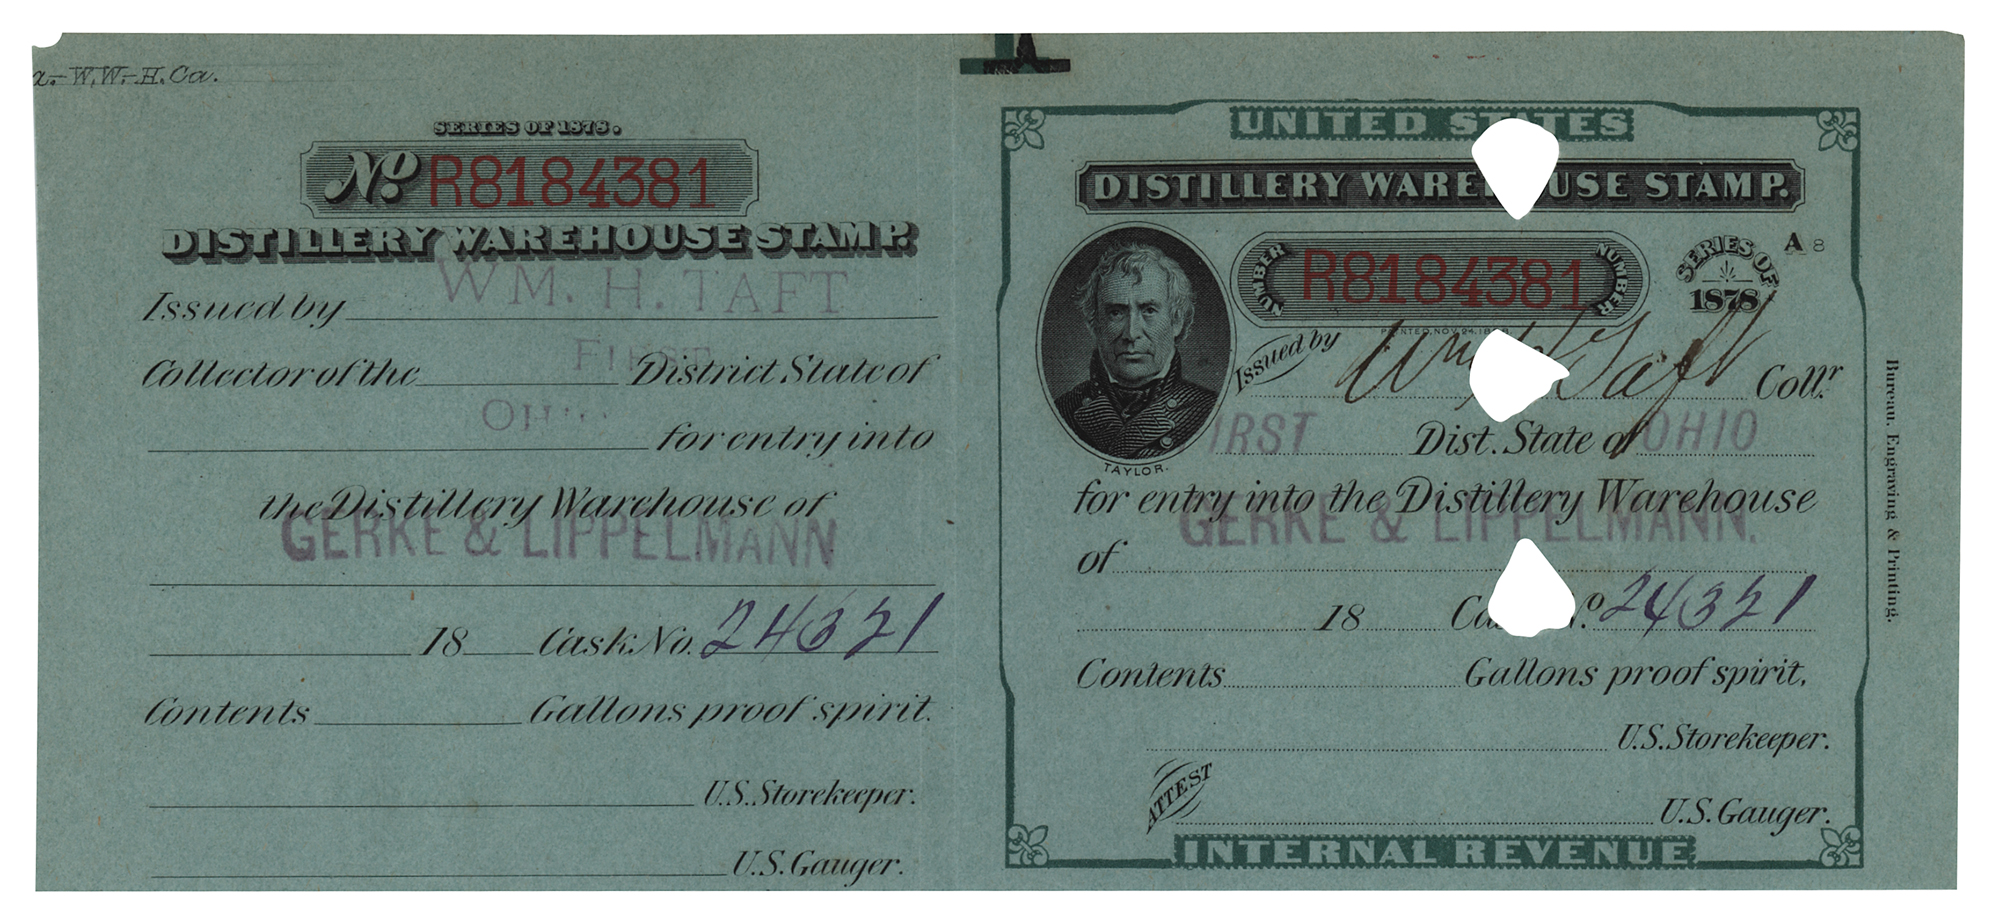 W.W.-H.Ca.
SERIES OF 1878.
No. R8184381
DISTILLERY WAREHOUSE STAMP.
WM. H. TAFT
Issued by
FIRST
Collector of the District State of
OHIO
for entry into
the Distillery Warehouse of
GERKE & LIPPELMANN
18 Cask. No. 24321
Contents Gallons proof spirit.
U.S. Storekeeper.
U.S. Gauger.
UNITED STATES
DISTILLERY WAREHOUSE STAMP.
NUMBER R8184381 NUMBER
SERIES OF 1878
A 8
Issued by Wm H Taft Collr.
TAYLOR.
IRST Dist. State of OHIO
for entry into the Distillery Warehouse
GERKE & LIPPELMANN.
of
18 Ca No. 24321
Contents Gallons proof spirit,
U.S. Storekeeper.
ATTEST
U.S. Gauger.
INTERNAL REVENUE
Bureau, Engraving & Printing.